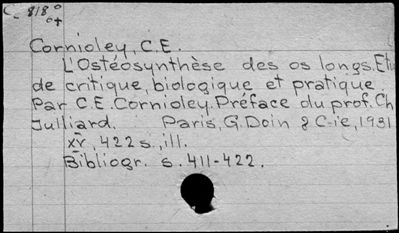 C 818°
o+
Cornioley, C.E.
L'Ostéosynthèse des os longs. Etu
de critique, biologique et pratique.
Par C.E. Cornioley. Préface du prof. Ch
Julliard. Paris, G. Doin & C-ie, 1931
xv, 422 s., ill.
Bibliogr. s. 411-422.